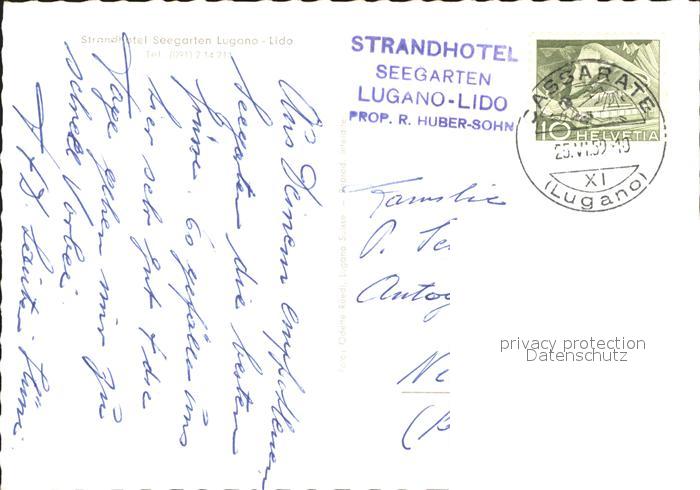 Strandhotel Seegarten Lugano-Lido
Tel. (091) 2 14 21
STRANDHOTEL
SEEGARTEN
LUGANO-LIDO
PROP. R. HUBER-SOHN
CASSARATE
25.VI.52-10
XI
(Lugano)
10 HELVETIA
Aus Deinem empfohlenen
Seegarten die besten
Grüsse. Es gefällt uns
hier sehr gut & die
Tage gehen nur zu
schnell vorbei.
Familie
P. Se
Ni
(B
Foto: Odette Ruedi, Lugano Suisse
privacy protection
Datenschutz